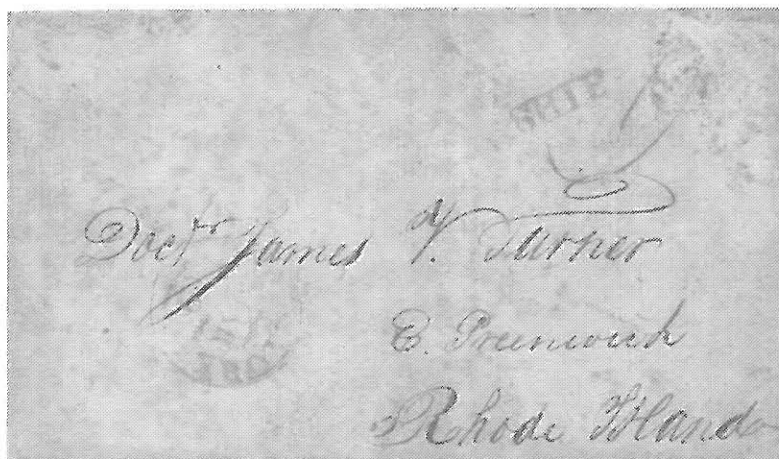 SHIP
Doctr James V. Turner
E. Greenwich
Rhode Island